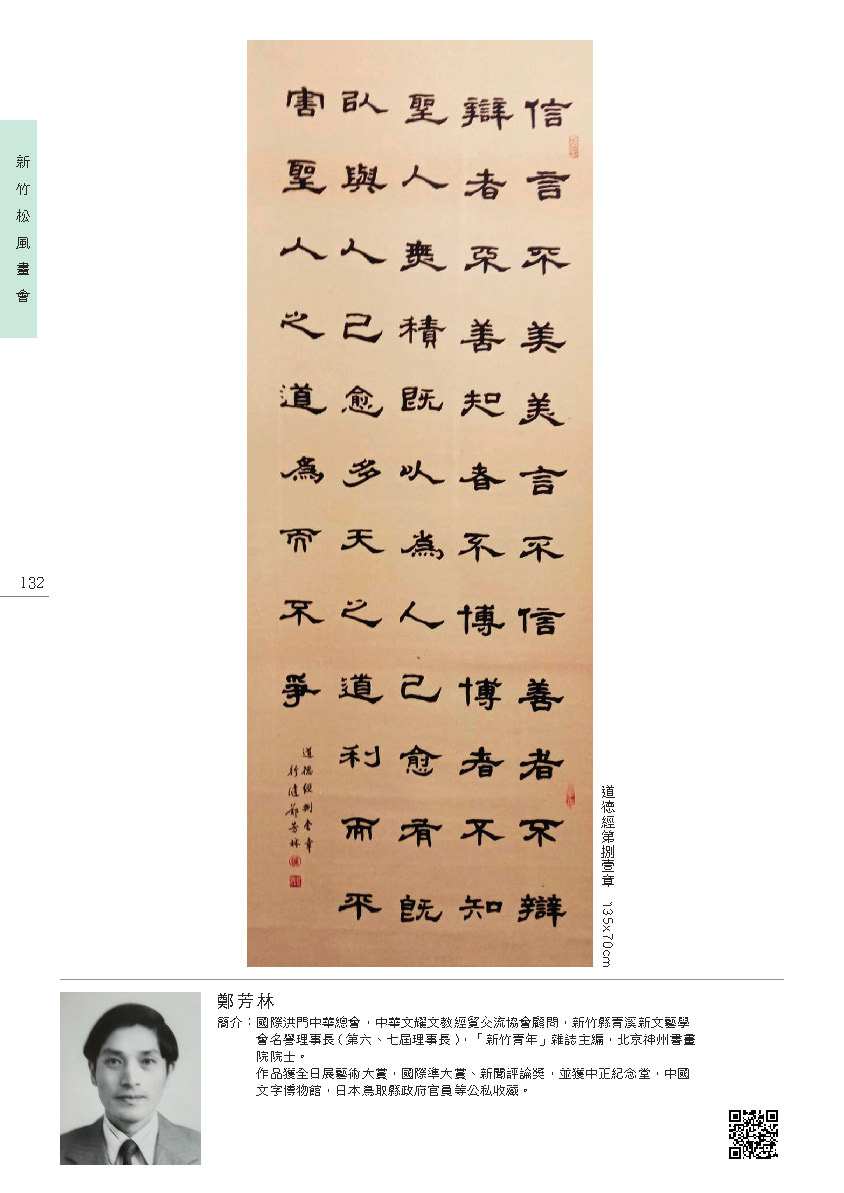 新竹松風畫會
132
信言不美美言不信善者不辯
辯者不善知者不博博者不知
聖人無積既以為人己愈有既
以與人己愈多天之道利而不
害聖人之道為而不爭
道德經捌壹章
行健鄭芳林
道德經第捌壹章 135x70cm
鄭芳林
簡介：國際洪門中華總會，中華文耀文教經貿交流協會顧問，新竹縣青溪新文藝學
會名譽理事長（第六、七屆理事長），「新竹青年」雜誌主編，北京神州書畫
院院士。
作品獲全日展藝術大賞，國際準大賞、新聞評論獎，並獲中正紀念堂，中國
文字博物館，日本鳥取縣政府官員等公私收藏。